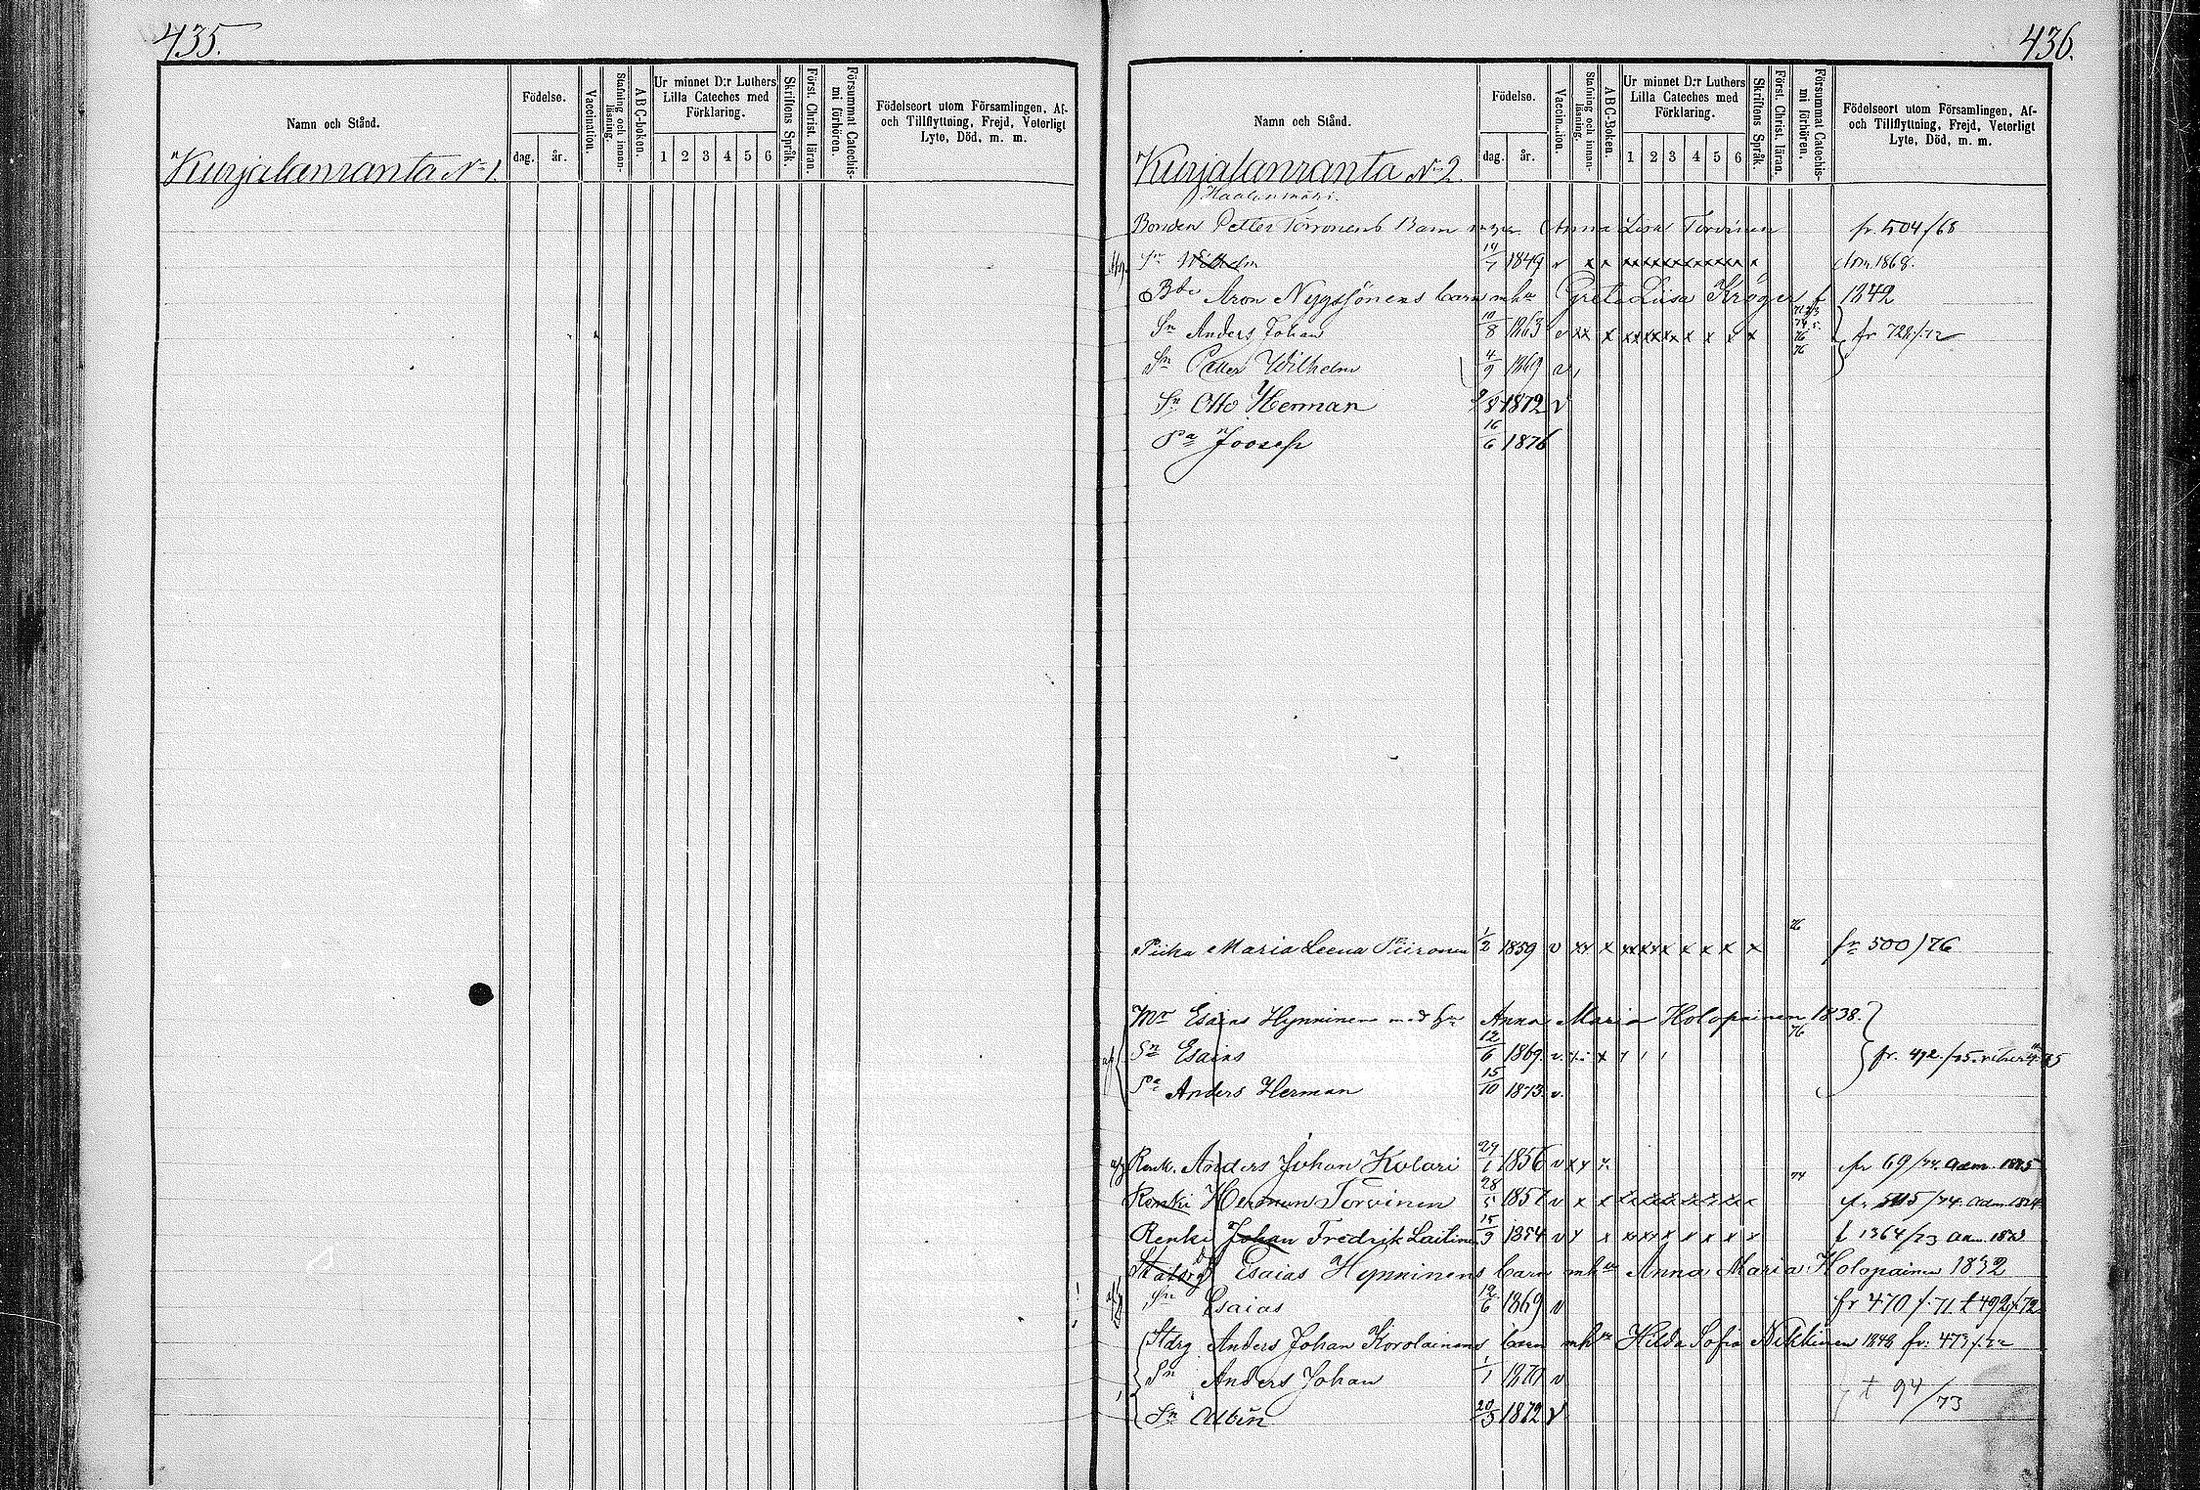 435.
Namn och Stånd.
Födelse.
dag. år.
Vaccination.
Stafning och innan-läsning.
A B C-boken.
Ur minnet D:r Luthers Lilla Cateches med Förklaring.
1 2 3 4 5 6
Skriftens Språk.
Först. Christ. läran.
Försummat Catechismi förhören.
Födelseort utom Församlingen, Af-
och Tillflyttning, Frejd, Veterligt
Lyte, Död, m. m.
Kurjalanranta No 1.
436.
Namn och Stånd.
Födelse.
dag. år.
Vaccination.
Stafning och innan-läsning.
A B C-boken.
Ur minnet D:r Luthers Lilla Cateches med Förklaring.
1 2 3 4 5 6
Skriftens Språk.
Först. Christ. läran.
Försummat Catechismi förhören.
Födelseort utom Församlingen, Af-
och Tillflyttning, Frejd, Veterligt
Lyte, Död, m. m.
Kurjalanranta No 2.
Bonden Petter Barn Anna Lisa Torvinen fr. 504/68
Sn Wilhelm 1849 v x x 1868.
Aron barn mhu Greta Liisa Kröger f 1842
Sn Anders Johan 10/8 1863 v xx x fr 728/72
Sn Petter Wilhelm 4/9 1869 v
Sn Otto Herman 1872 v
Sn Joosep 16/6 1876
76
Piika Maria Leena Piironen 1/2 1859 v xx x x x x x x fr 500/76
Esaias Hynninen med Anna Maria Holopainen 1838.
76
Sn Esaias 12/6 1869. v. fr. 492/75
Anders Herman 15/10 1873. v.
Renk. Anders Johan Kolari 29/1 1856 v x x fr 69/74. adm. 1875
74
Renki Herman Torvinen 28/5 1857 v x x /74. adm 1874
Renki Johan Fredrik Laitinen 15/9 1854 v x x f 1364/73
Esaias Hynninens barn mhu Anna Maria Holopainen 1832
Sn Esaias 12/6 1869 v fr 470 f. 71. t 492/72
Stdrg Anders Johan Korolainens barn mhu Hilda Sofia Nikkinen 1848 fr. 473/72
Sn Anders Johan 1/1 1870 v
t 94/73
Sn Albin 20/3 1872 v